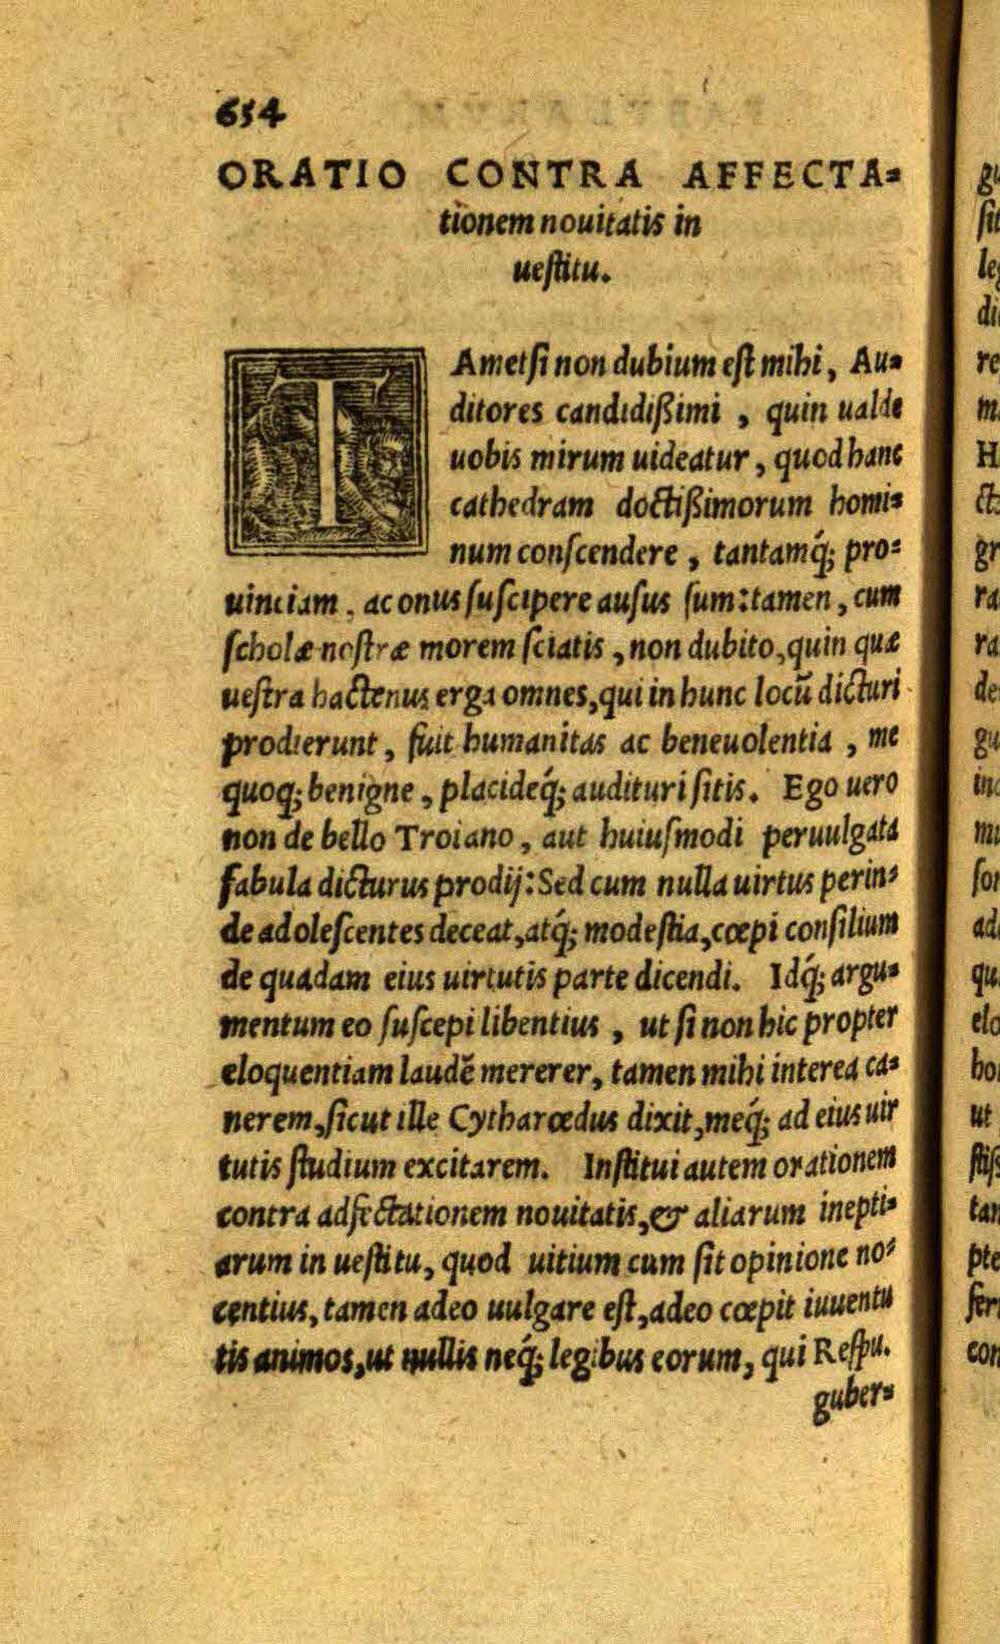 654
ORATIO CONTRA AFFECTA=
tionem nouitatis in
ueſtitu.
TAmetſi non dubium eſt mihi, Au=
ditores candidißimi, quin ualde
uobis mirum uideatur, quod hanc
cathedram doctißimorum homi=
num conſcendere, tantamq́; pro=
uinciam, ac onus ſuſcipere auſus ſum: tamen, cum
ſcholæ noſtræ morem ſciatis, non dubito, quin quæ
ueſtra hactenus erga omnes, qui in hunc locũ dicturi
prodierunt, fuit humanitas ac beneuolentia, me
quoq; benigne, placideq́; audituri ſitis. Ego uero
non de bello Troiano, aut huiuſmodi peruulgata
fabula dicturus prodij: Sed cum nulla uirtus perin=
de adoleſcentes deceat, atq́; modeſtia, cœpi conſilium
de quadam eius uirtutis parte dicendi. Idq́; argu=
mentum eo ſuſcepi libentius, ut ſi non hic propter
eloquentiam laudẽ mererer, tamen mihi interea ca=
nerem, ſicut ille Cytharœdus dixit, meq́; ad eius uir
tutis ſtudium excitarem. Inſtitui autem orationem
contra adfectationem nouitatis, & aliarum inepti=
arum in ueſtitu, quod uitium cum ſit opinione no=
centius, tamen adeo uulgare eſt, adeo cœpit iuuentu
tis animos, ut nullis neq́; legibus eorum, qui Reſpu.
guber=